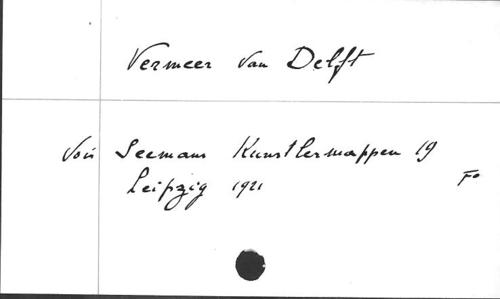 Vermeer van Delft
Voir Seemans Kunstlermappen 19
Leipzig 1921
Fo